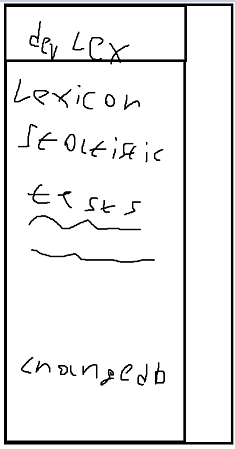 dev Lex
Lexicon
Statistic
tests
changedb